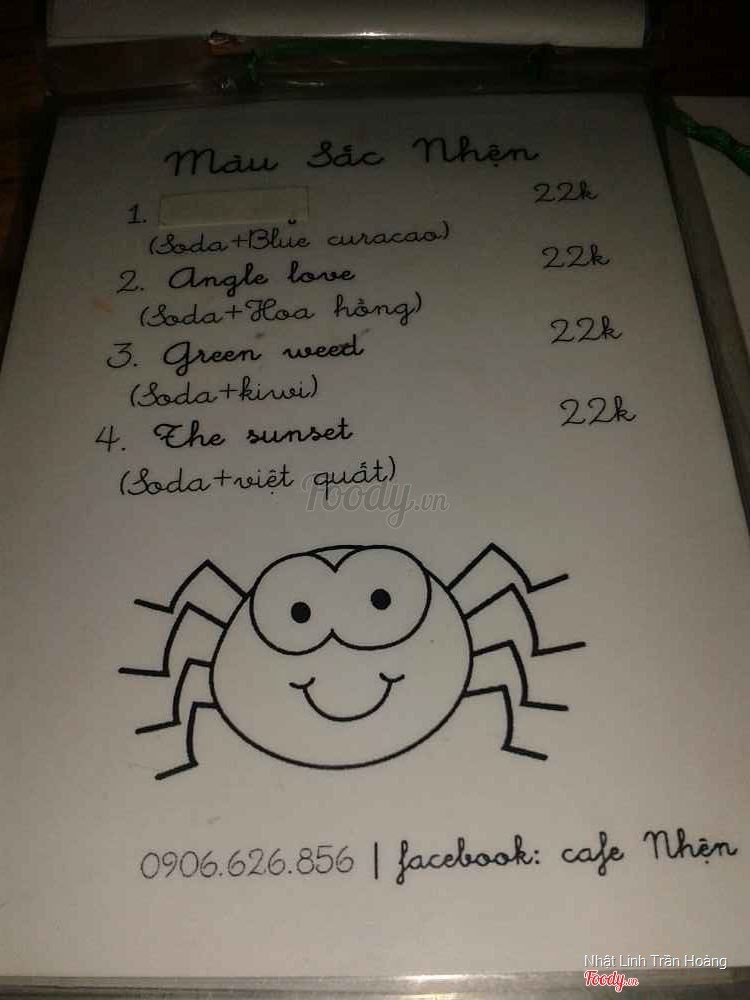 Màu Sắc Nhện
1. 22k
(Soda+Blue curacao)
2. Angle love 22k
(Soda+Hoa hồng)
3. Green weed 22k
(Soda+kiwi)
4. The sunset 22k
(Soda+việt quất)
Foody.vn
0906.626.856 | facebook: cafe Nhện
Nhật Linh Trần Hoàng
Foody.vn